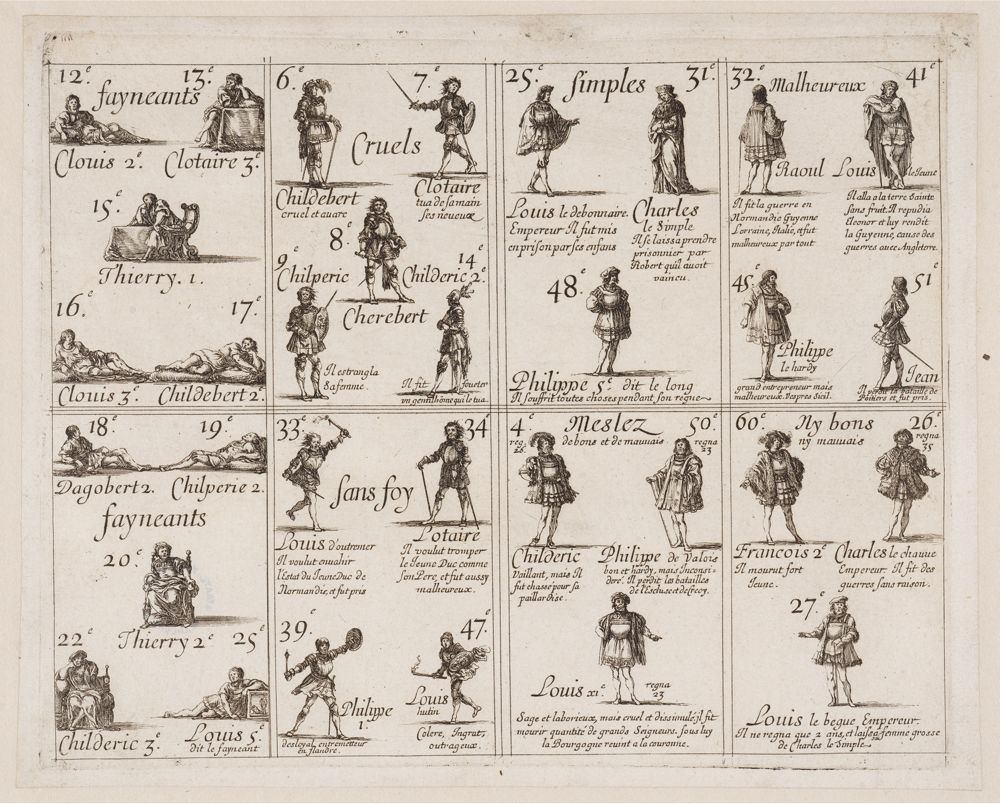 12.e 13.e
fayneants
Clouis 2.e Clotaire 3.e
15.e
Thierry. 1.
16.e 17.e
Clouis 3.e Childebert 2.
6.e 7.e
Cruels
Childebert
cruel et auare
Clotaire
tua de sa main
ses neueux
8.e
9.e
Chilperic
14.e
Childeric 2.e
Cherebert
Il estrangla
sa femme.
Il fit foueter
vn gentilhõme qui le tua.
25.e Simples 31.e
Louis le debonnaire.
Empereur Il fut mis
en prison par ses enfans
Charles
le Simple
Il se laissa prendre
prisonnier par
Robert qu'il auoit
vaincu.
48.e
Philippe 5.e dit le long
Il souffrit toutes choses pendant son regne
32.e Malheureux 41.e
Raoul
Il fit la guerre en
Normandie Guyenne
Lorraine, Italie, et fut
malheureux par tout
Louis le Jeune
Il alla a la terre Sainte
sans fruit. Il repudia
Eleonor et luy rendit
la Guyenne, cause des
guerres auec Angletere.
45.e 51.e
Philippe
le hardy
grand entrepreneur mais
malheureux. Vespres Sicil.
Jean
Il perdit la bataille de
Poitiers et fut pris.
18.e 19.e
Dagobert 2. Chilperic 2.
fayneants
20.e
Thierry 2.e
22.e 25.e
Childeric 3.e
Louis 5.e
dit le fayneant
33.e 34.e
sans foy
Louis d'outremer
Il voulut enuahir
l'estat du Jeune Duc de
Normandie, et fut pris
Lotaire
Il voulut tromper
le Jeune Duc comme
son Pere, et fut aussy
malheureux.
39.e 47.e
Philippe
1.
desloyal, entremetteur
en flandre.
Louis
hutin
Colere, Ingrat,
outrageux.
4.e
reg.
26.
Meslez
de bons et de mauuais
50.e
regna
23
Childeric
Vaillant, mais Il
fut chassé pour sa
paillardise.
Philippe de Valois
bon et hardy, mais Inconsi-
deré. Il perdit les batailles
de l'Escluse et de Crecy.
Louis XI.e regna
23
Sage et laborieux, mais cruel et dissimulé, il fit
mourir quantité de grands Seigneurs. sous luy
la Bourgogne reuint a la couronne.
60.e Ny bons
ny mauuais
26.e
regna
35
Francois 2.e
Il mourut fort
Jeune.
Charles le chauue
Empereur Il fit des
guerres sans raison.
27.e
Louis le begue Empereur.
Il ne regna que 2 ans, et laissa sa femme grosse
de Charles le Simple